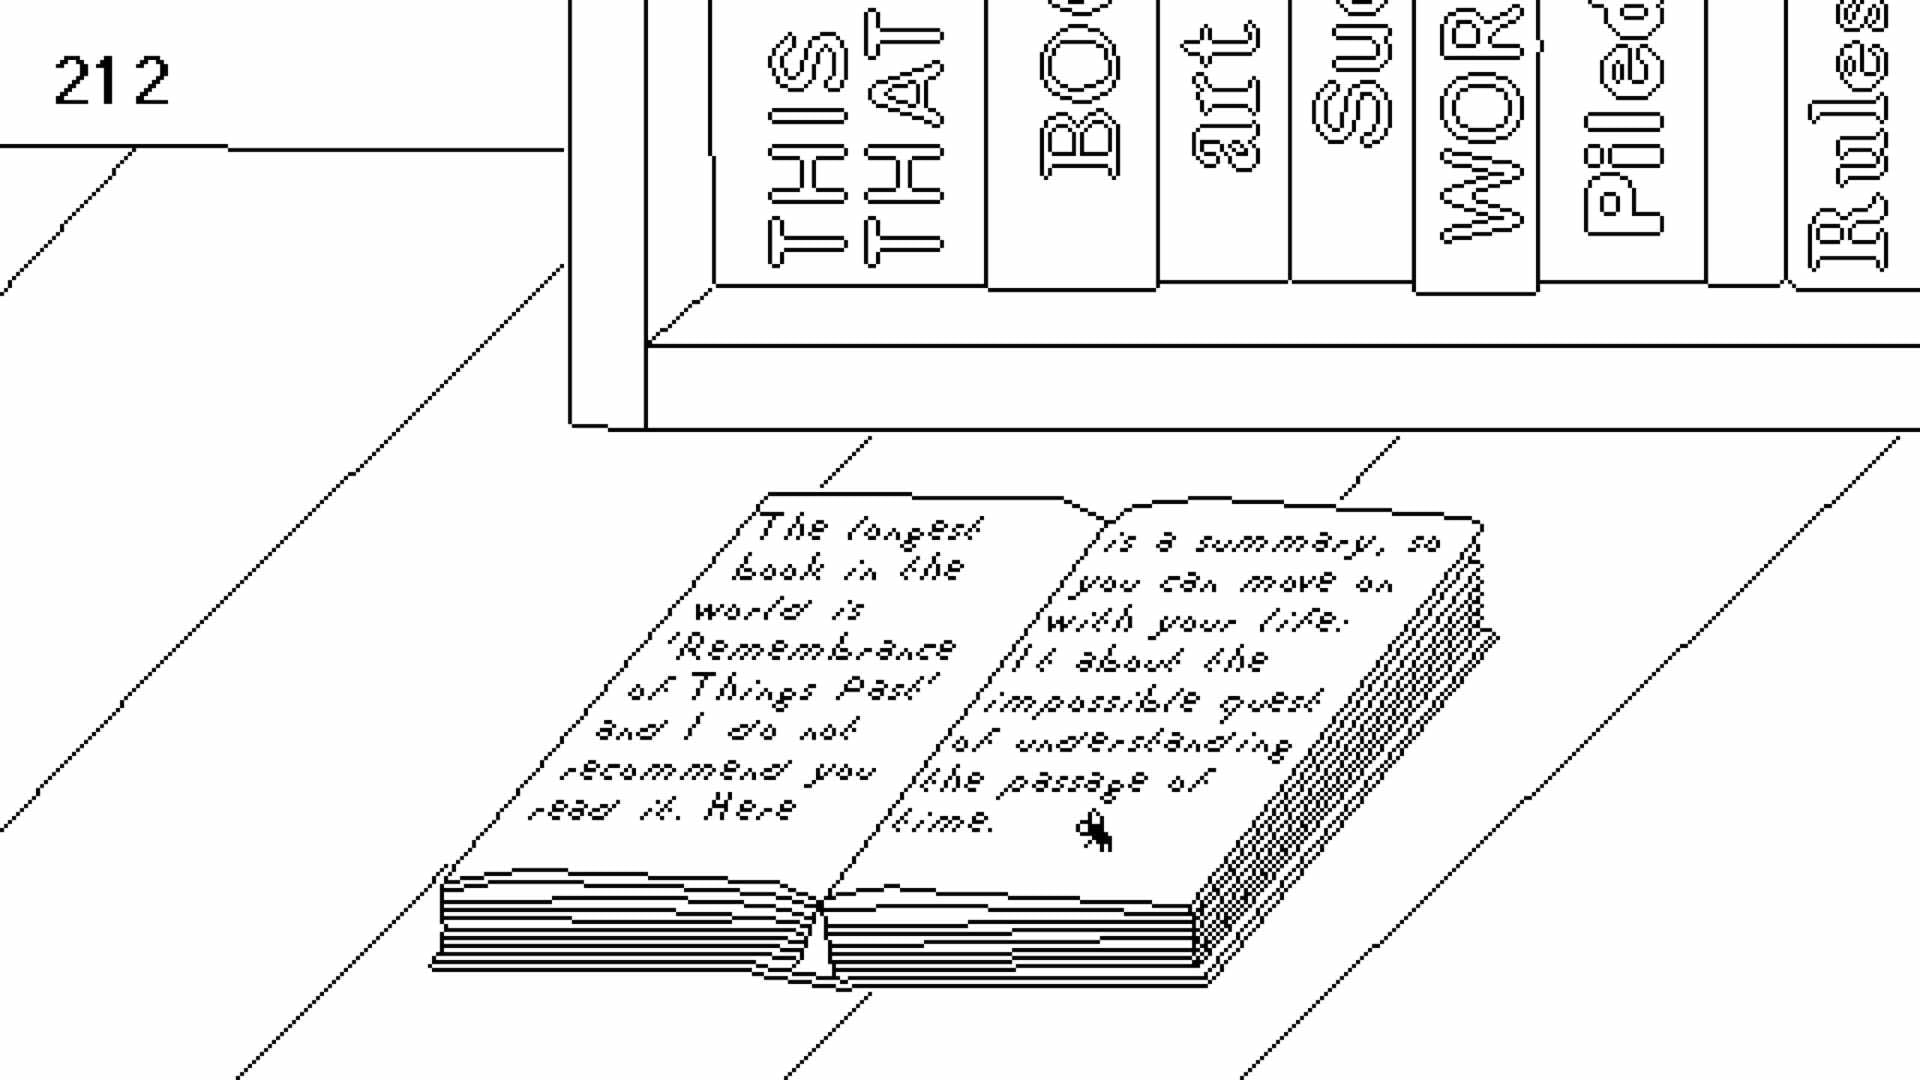 212
THIS
THAT
BOO
art
Suc
WOR
Piled
Rules
The longest
book in the
world is
'Remembrance
of Things Past'
and I do not
recommend you
read it. Here
is a summary, so
you can move on
with your life.
It about the
impossible quest
of understanding
the passage of
time.